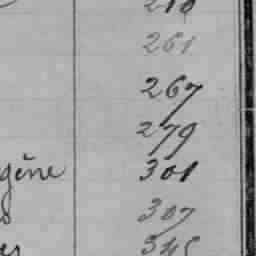 210
261
267
279
gène 301
307
es 345